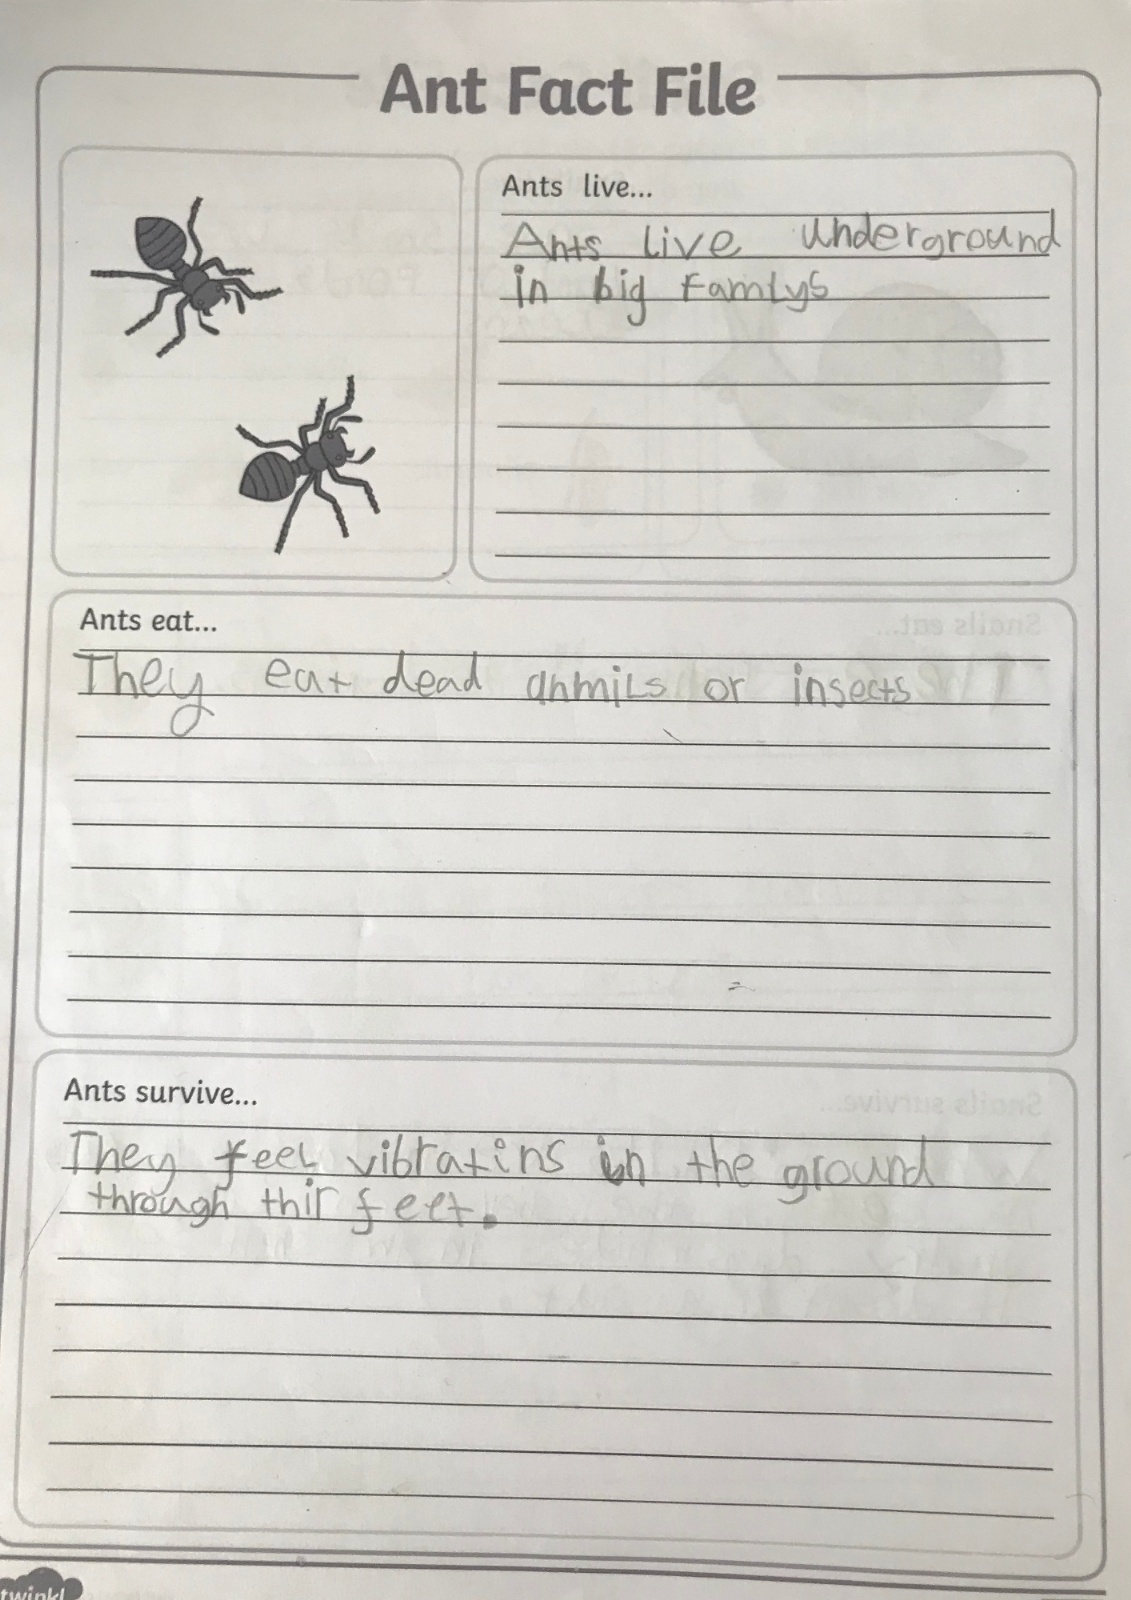 Ant Fact File
Ants live...
Ants live underground
in big Famlys
Ants eat...
They eat dead anmils or insects
Ants survive...
They feel vibratins in the ground
through thir feet.
Snails eat...
Snails survive...
twinkl